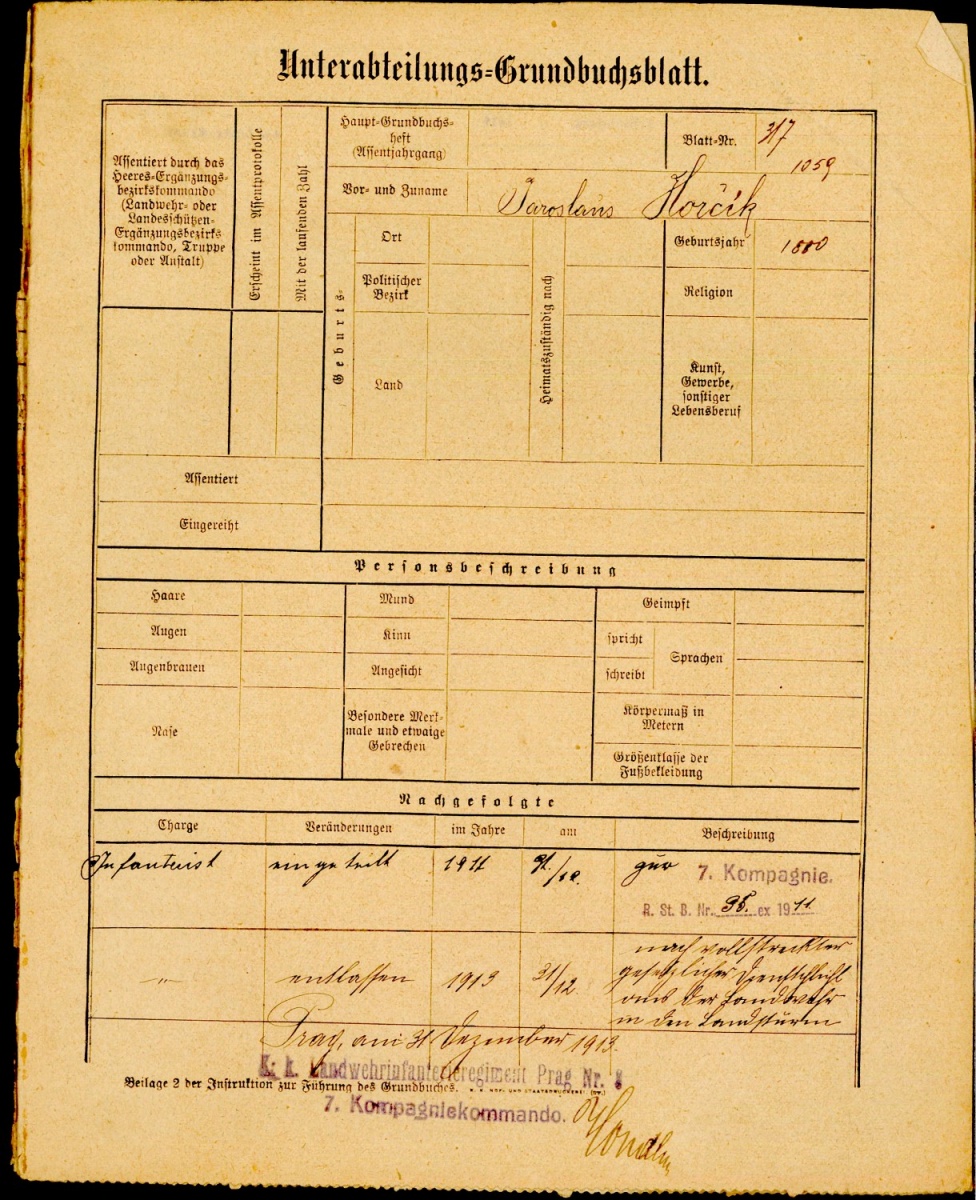 Unterabteilungs=Grundbuchsblatt.
Assentiert durch das
Heeres=Ergänzungs=
bezirkskommando
(Landwehr= oder
Landesschützen=
Ergänzungsbezirks
kommando, Truppe
oder Anstalt)
Erscheint im Assentprotokolle
Mit der laufenden Zahl
Haupt=Grundbuchs=
heft
(Assentjahrgang)
Blatt=Nr.
317
1059
Vor= und Zuname
Jaroslaus Horčik
Geburts=
Ort
Politischer
Bezirk
Land
Heimatszuständig nach
Geburtsjahr
1880
Religion
Kunst,
Gewerbe,
sonstiger
Lebensberuf
Assentiert
Eingereiht
Personsbeschreibung
Haare
Augen
Augenbrauen
Nase
Mund
Kinn
Angesicht
Besondere Merk=
male und etwaige
Gebrechen
Geimpft
spricht
schreibt
Sprachen
Körpermaß in
Metern
Größenklasse der
Fußbekleidung
Nachgefolgte
Charge Veränderungen im Jahre am Beschreibung
Infanterist eingeteilt 1911 zur 7. Kompagnie.
R. St. B. Nr. 95. ex 1911
〃 entlassen 1913 31/12 nach vollstreckter
gesetzlicher Dienstpflicht
aus der Landwehr
in den Landsturm
Prag, am 31 Dezember 1913.
K. k. Landwehrinfanterieregiment Prag Nr. 8
Beilage 2 der Instruktion zur Führung des Grundbuches.
7. Kompagniekommando.